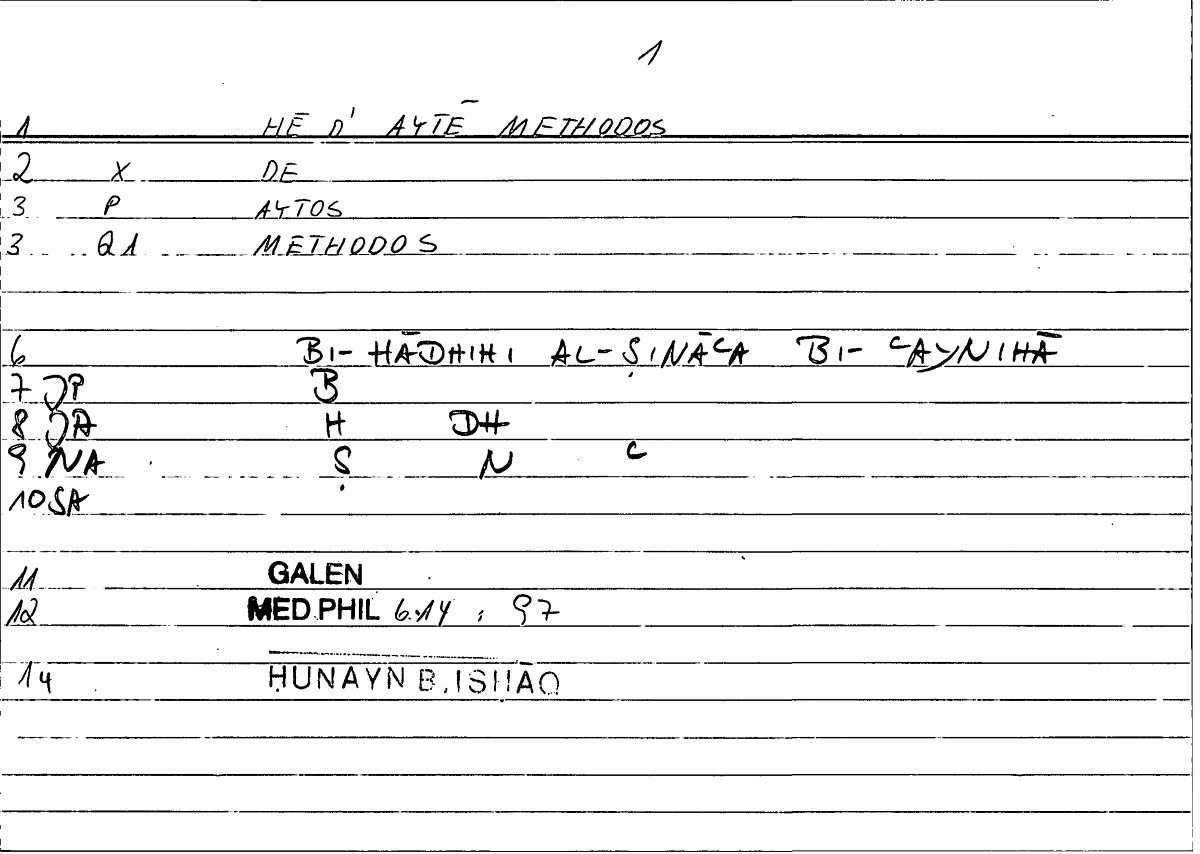 1
1 HĒ D' AYTĒ METHODOS
2 X DE
3 P AYTOS
3 Q1 METHODOS
6 BI- HĀDHIHI AL-ṢINĀʿA BI- ʿAYNIHĀ
7 JP B
8 JA H DH
9 NA Ṣ N ʿ
10 SA
11 GALEN
12 MED.PHIL 6.14 ; 97
14 ḤUNAYN B. ISḤĀQ